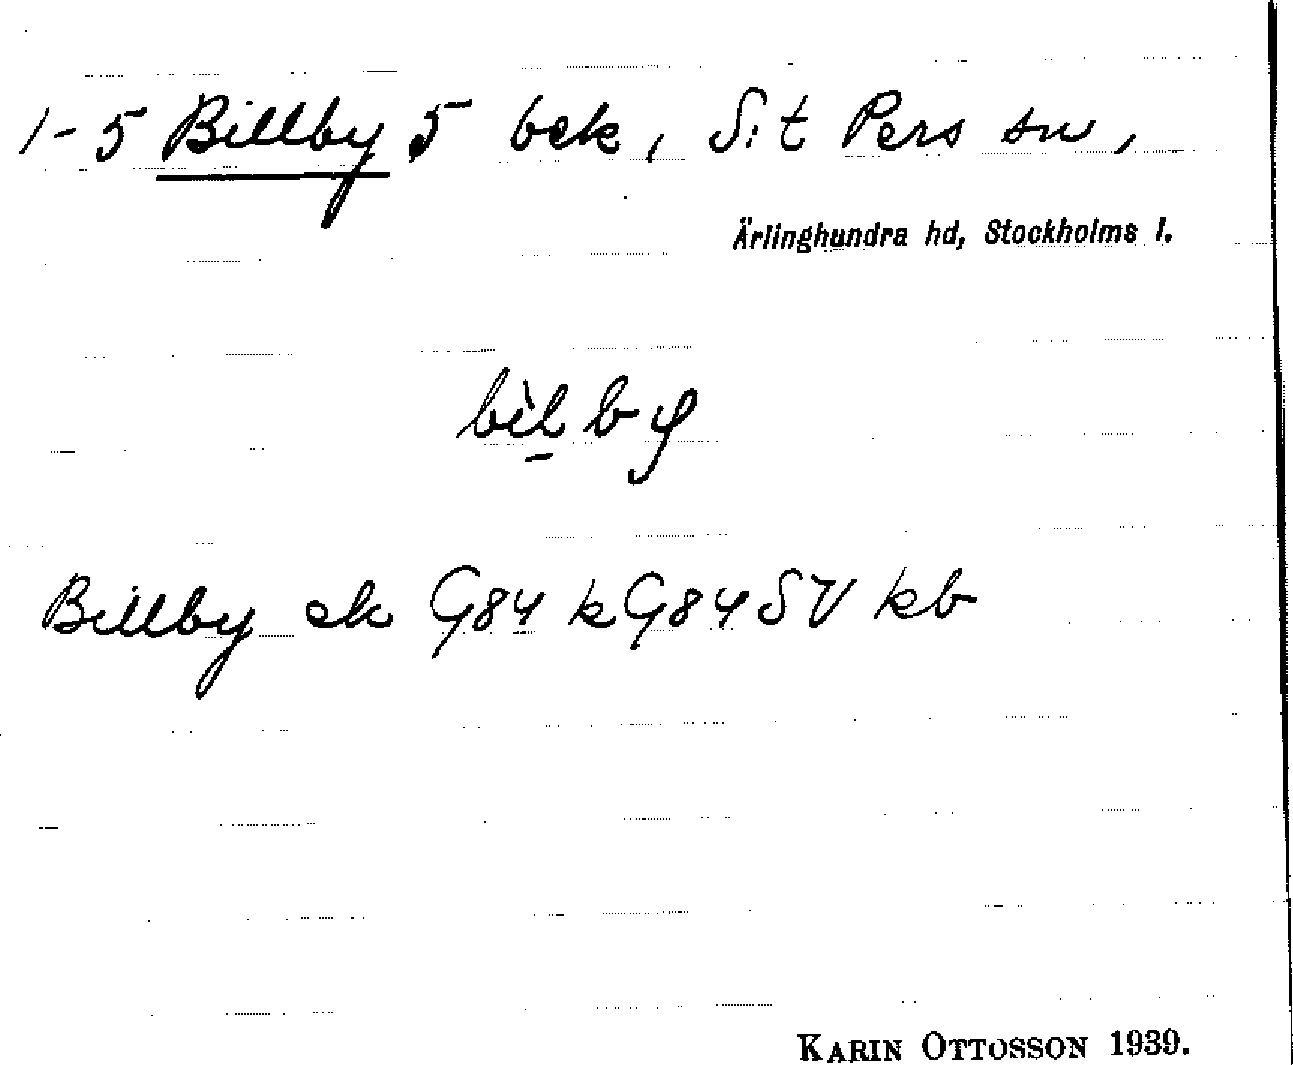 1-5 Billby 5 bek, S:t Pers sn,
Ärlinghundra hd, Stockholms l.
bìlby
Billby ek G84 k G84 SV kb
KARIN OTTOSSON 1939.